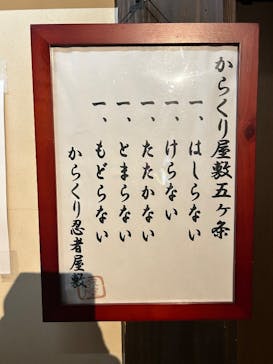 からくり屋敷五ヶ条
一、はしらない
一、けらない
一、たたかない
一、とまらない
一、もどらない
からくり忍者屋敷